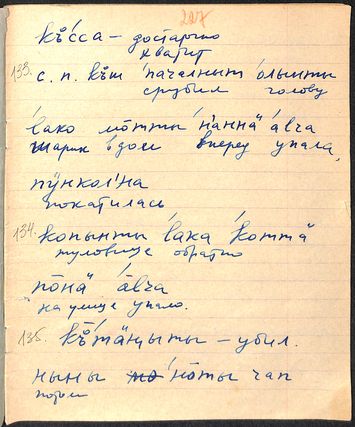 227
къ́сса – достаточно
хватит
133. с. п. къ́ш пачалныт о́лымты
срубил голову
ӣако мо̄тты нӓннӓ а́вча
шарик в дом вперед упала,
пӱнкол'на
покатилась
134. копынты ла́ка ко́ттӓ
туловище обратно
по̄нӓ а̄́вча
на улице упало.
135. къ̊та̄ӈыты – убил.
ныны но̄ты чап
потом